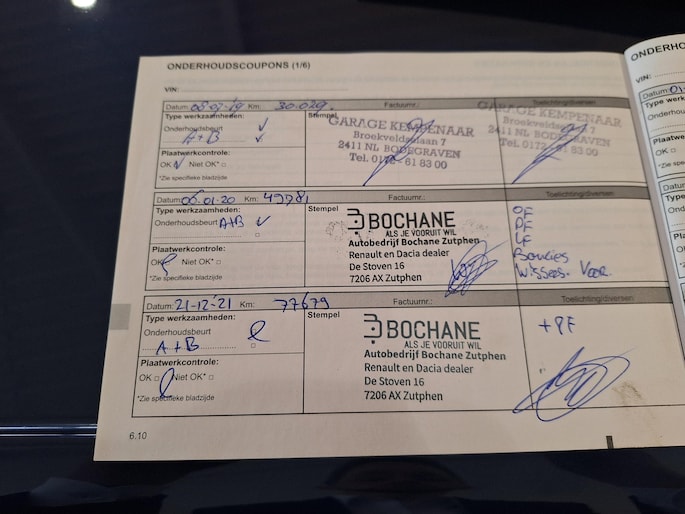 ONDERHOUDSCOUPONS (1/6)
VIN:
Datum: 08-02-19 Km: 30.029. Factuurnr.: Toelichting/diversen
Type werkzaamheden: Stempel
Onderhoudsbeurt
A+B
GARAGE KEMPENAAR
Broekveldselaan 7
2411 NL BODEGRAVEN
Tel. 0172 - 61 83 00
GARAGE KEMPENAAR
Broekveldselaan 7
2411 NL BODEGRAVEN
Tel. 0172 - 61 83 00
Plaatwerkcontrole:
OK Niet OK*
*Zie specifieke bladzijde
Datum: 06-01-20 Km: 49781 Factuurnr.: Toelichting/diversen
Type werkzaamheden: Stempel
Onderhoudsbeurt A+B
BOCHANE
ALS JE VOORUIT WIL
Autobedrijf Bochane Zutphen
Renault en Dacia dealer
De Stoven 16
7206 AX Zutphen
OF
PF
LF
Bougies
Wissers. Voor.
Plaatwerkcontrole:
OK Niet OK*
*Zie specifieke bladzijde
Datum: 21-12-21 Km: 77679 Factuurnr.: Toelichting/diversen
Type werkzaamheden: Stempel
Onderhoudsbeurt
A+B
BOCHANE
ALS JE VOORUIT WIL
Autobedrijf Bochane Zutphen
Renault en Dacia dealer
De Stoven 16
7206 AX Zutphen
+PF
Plaatwerkcontrole:
OK Niet OK*
*Zie specifieke bladzijde
6.10
VIN: